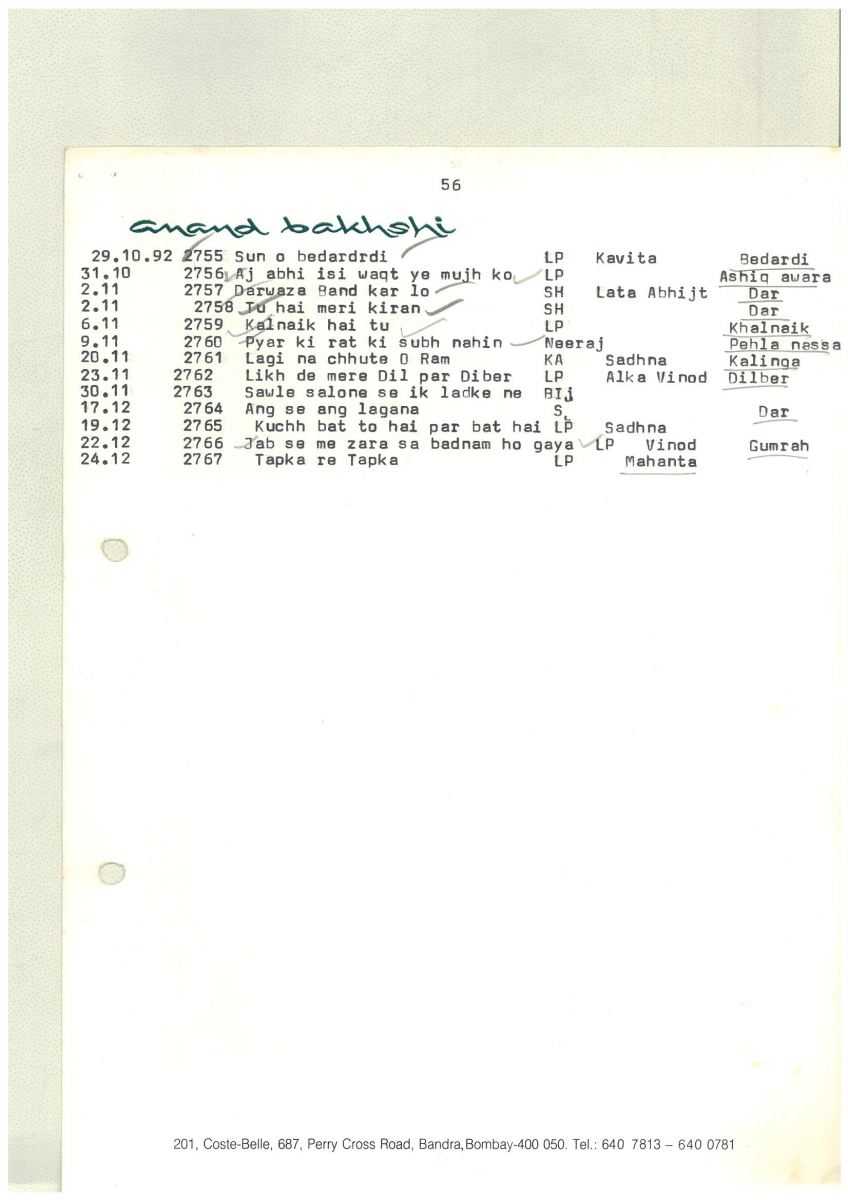 56
anand bakhshi
29.10.92 2755 Sun o bedardrdi LP Kavita Bedardi
31.10 2756 Aj abhi isi waqt ye mujh ko LP Ashiq awara
2.11 2757 Darwaza Band kar lo SH Lata Abhijt Dar
2.11 2758 Tu hai meri kiran SH Dar
6.11 2759 Kalnaik hai tu LP Khalnaik
9.11 2760 Pyar ki rat ki subh nahin Neeraj Pehla nassa
20.11 2761 Lagi na chhute O Ram KA Sadhna Kalinga
23.11 2762 Likh de mere Dil par Diber LP Alka Vinod Dilber
30.11 2763 Sawle salone se ik ladke ne BIj
17.12 2764 Ang se ang lagana S, Dar
19.12 2765 Kuchh bat to hai par bat hai LP Sadhna
22.12 2766 Jab se me zara sa badnam ho gaya LP Vinod Gumrah
24.12 2767 Tapka re Tapka LP Mahanta
201, Coste-Belle, 687, Perry Cross Road, Bandra,Bombay-400 050. Tel.: 640 7813 – 640 0781